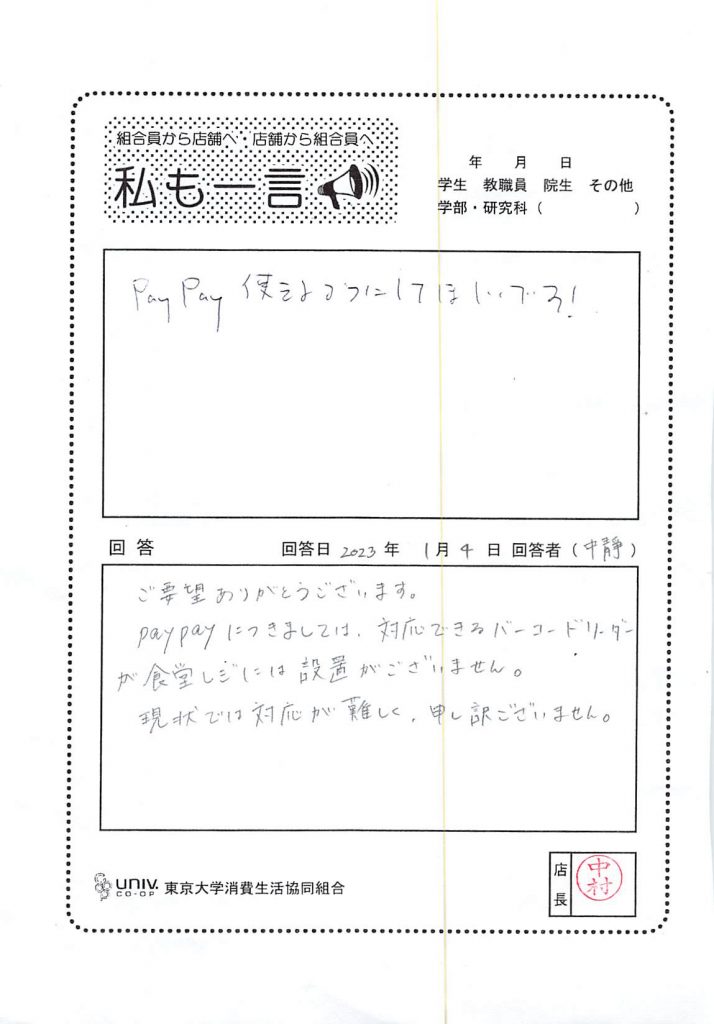 組合員から店舗へ・店舗から組合員へ
私も一言
年 月 日
学生 教職員 院生 その他
学部・研究科( )
PayPay 使えるようにしてほしいです!
回答 回答日 2023年 1月4日 回答者(中静)
ご要望ありがとうございます。
paypayにつきましては、対応できるバーコードリーダー
が食堂レジには設置がございません。
現状では対応が難しく、申し訳ございません。
UNIV. CO-OP 東京大学消費生活協同組合
店長
中村